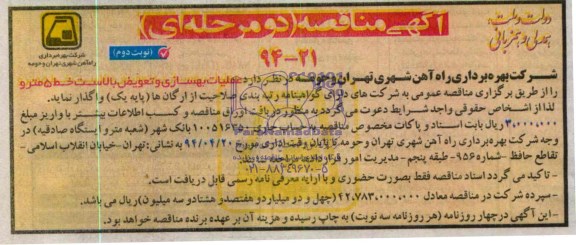 دولت و ملت، همدلی و همزبانی
آگهی مناقصه (دو مرحله‌ای)
۹۴-۲۱
(نوبت دوم)
شرکت بهره‌برداری
راه‌آهن شهری تهران و حومه
شرکت بهره‌برداری راه‌آهن شهری تهران و حومه در نظر دارد: عملیات بهسازی و تعویض بالاست خط ۵ مترو
را از طریق برگزاری مناقصه عمومی به شرکت های دارای گواهینامه رتبه بندی صلاحیت از ارگان ها (پایه یک) واگذار نماید.
لذا از اشخاص حقوقی واجد شرایط دعوت می‌گردد به منظور دریافت اوراق مناقصه و کسب اطلاعات بیشتر با واریز مبلغ
۳،۰۰۰،۰۰۰ ریال بابت اسناد و پاکات مخصوص مناقصه به حساب جاری بانک شهر (شعبه مترو ایستگاه صادقیه) در
وجه شرکت بهره‌برداری راه آهن شهری تهران و حومه تا پایان وقت اداری مورخ ۹۴/۰۴/۲۰ به نشانی: تهران-خیابان انقلاب اسلامی -
تقاطع حافظ -شماره ۹۵۶- طبقه پنجم - مدیریت امور قراردادها مراجعه نمایند.
۰۲۱-۸۸۳۴۹۶۷۰-۵
- تاکید می گردد اسناد مناقصه فقط بصورت حضوری و با ارایه معرفی نامه رسمی قابل دریافت است.
- سپرده شرکت در مناقصه معادل ۴۲،۷۸۳،۰۰۰،۰۰۰ (چهل و دو میلیارد و هفتصد و هشتاد و سه میلیون) ریال می باشد.
- این آگهی در چهار روزنامه (هر روزنامه سه نوبت) به چاپ رسیده و هزینه آن بر عهده برنده مناقصه خواهد بود.